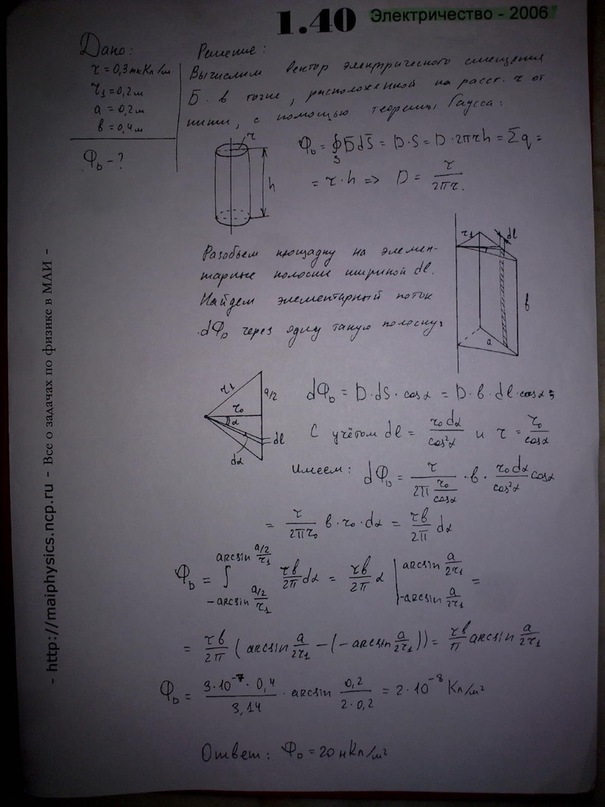 1.40 Электричество - 2006
Дано:
τ = 0,3 мкКл/м
r₁ = 0,2 м
a = 0,2 м
b = 0,4 м
Φ_D - ?
Решение:
Вычислим вектор электрического смещения
D̄ в точке, расположенной на расст. r от
нити, с помощью теоремы Гаусса:
Φ_D = ∮_S D̄dS̄ = D·S = D·2πrh = Σq =
= τ·h => D = τ/2πr.
r
h
Разобьем площадку на элемен-
тарные полоски шириной dl.
Найдем элементарный поток
dΦ_D через одну такую полоску:
r₁
dl
b
a
r₁
a/2
r₀
α
dl
dα
dΦ_D = D·dS·cosα = D·b·dl·cosα;
С учётом dl = r₀dα/cos²α и r = r₀/cosα
Имеем: dΦ_D = τ/(2π r₀/cosα) · b · r₀dα/cos²α cosα
= τ/2πr₀ b·r₀·dα = τb/2π dα
Φ_D = ∫_{-arcsin (a/2)/r₁}^{arcsin (a/2)/r₁} τb/2π dα = τb/2π α |_{-arcsin a/2r₁}^{arcsin a/2r₁} =
= τb/2π (arcsin a/2r₁ - (-arcsin a/2r₁)) = τb/π arcsin a/2r₁
Φ_D = 3·10⁻⁷·0,4/3,14 · arcsin 0,2/2·0,2 = 2·10⁻⁸ Кл/м²
Ответ: Φ_D = 20 нКл/м²
- http://maiphysics.ncp.ru - Все о задачах по физике в МАИ -